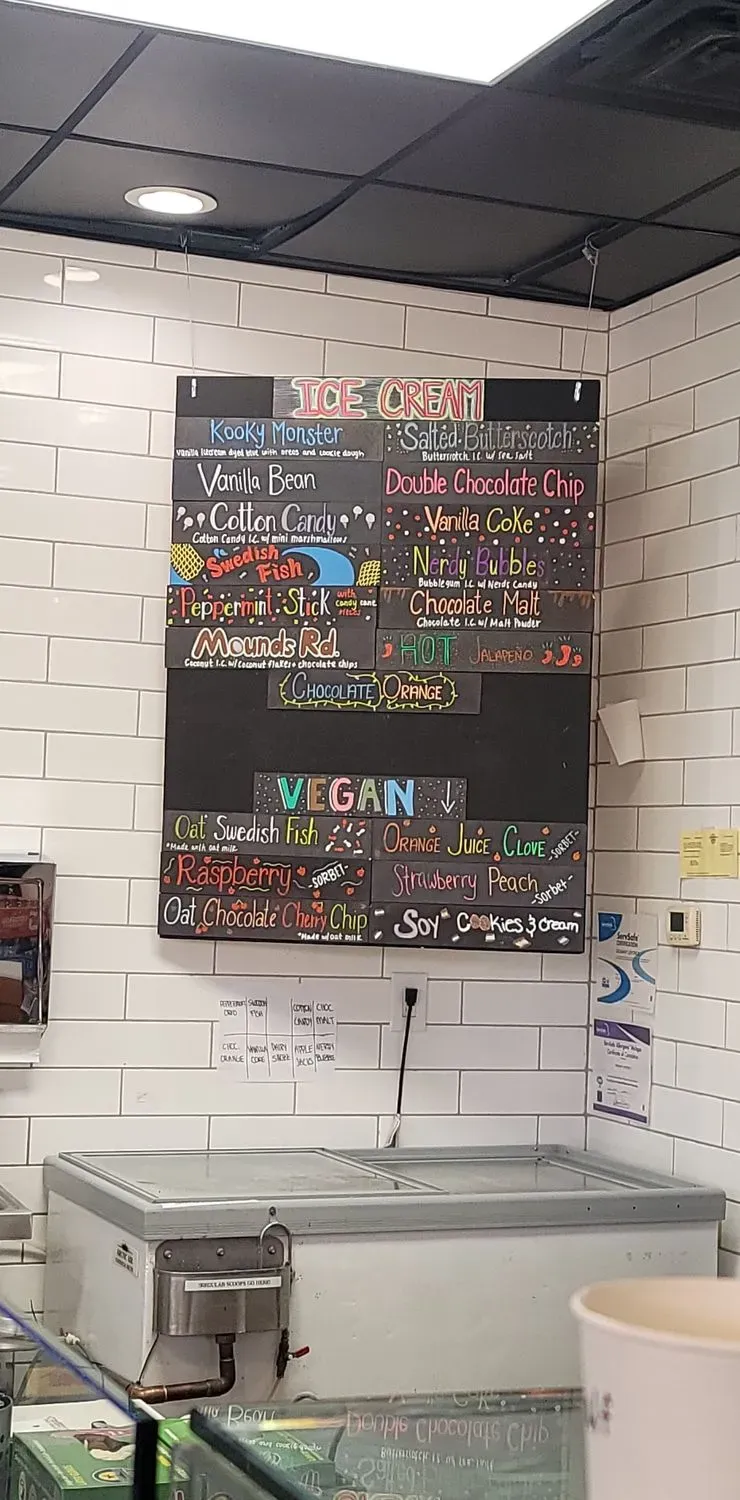 ICE CREAM
Kooky Monster
Vanilla icecream dyed blue with oreos and cookie dough
Salted Butterscotch
Butterscotch I.C. w/ sea salt
Vanilla Bean
Double Chocolate Chip
Cotton Candy
Cotton Candy I.C. w/ mini marshmallows
Vanilla Coke
Swedish
Fish
Nerdy Bubbles
Bubblegum I.C. w/ Nerds Candy
Peppermint Stick
with
candy cane
pieces
Chocolate Malt
Chocolate I.C. w/ Malt Powder
Mounds Rd.
Coconut I.C. w/ coconut flakes + chocolate chips
HOT JALAPEÑO
CHOCOLATE ORANGE
VEGAN ↓
Oat Swedish Fish
*Made with oat milk
ORANGE JUICE CLOVE -SORBET-
Raspberry -SORBET-
Strawberry Peach -Sorbet-
Oat Chocolate Cherry Chip
*Made w/ oat milk
Soy Cookies & Cream
SWEDISH
FISH
COTTON
CANDY
CHOC
MALT
CHOC
ORANGE
VANILLA
COKE
APPLE
JACKS
NERDY
ServSafe
REGULAR SCOOPS GO HERE!
Double Chocolate Chip